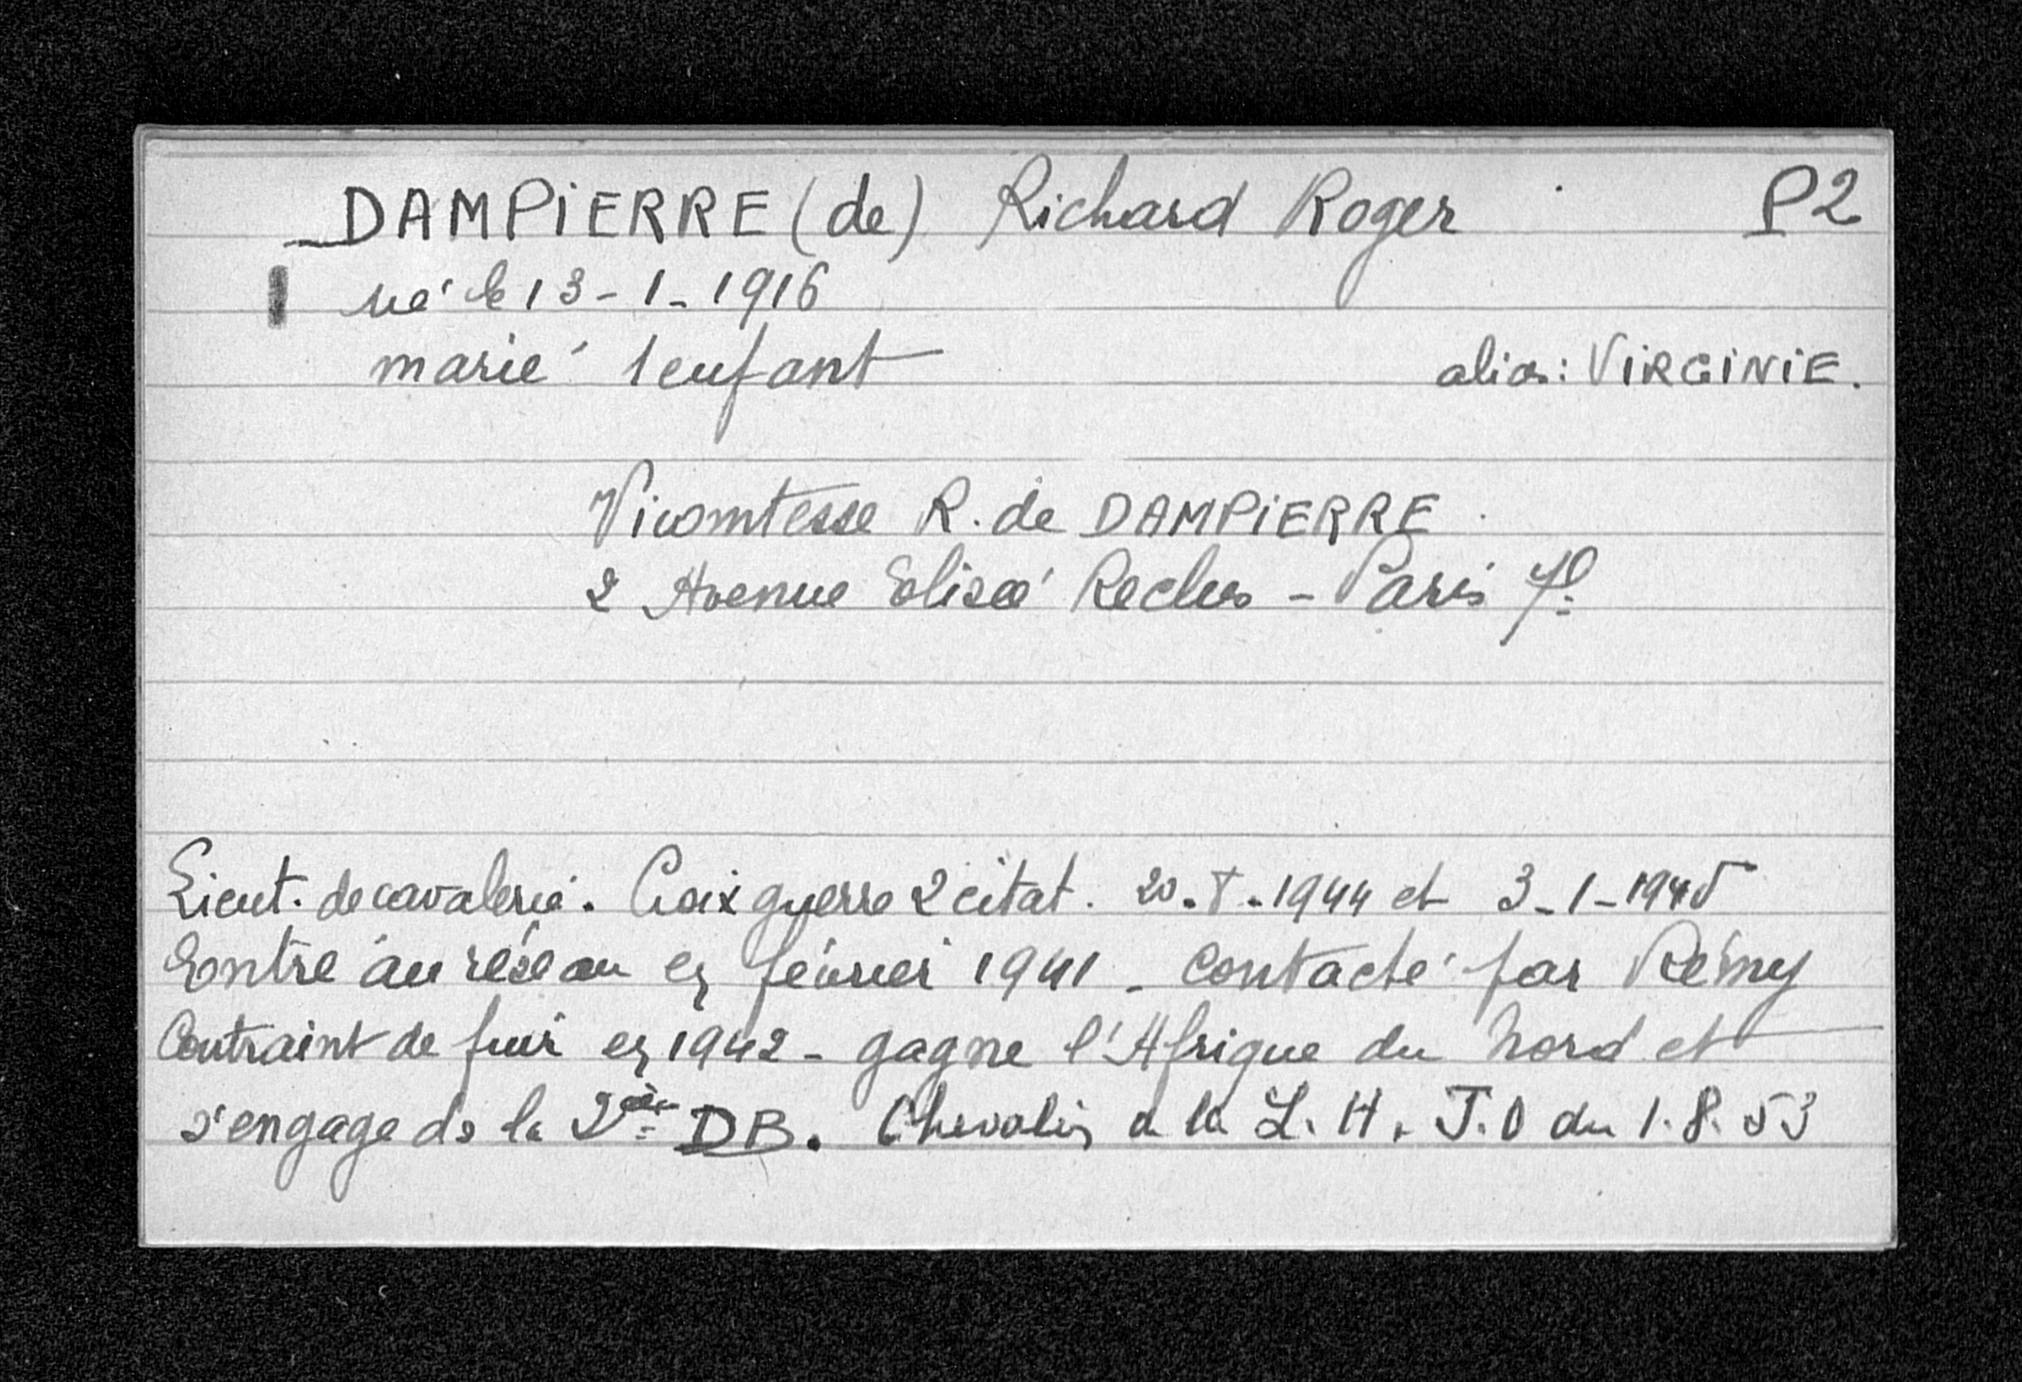 DAMPiERRE (de) Richard Roger P2
né le 13-1-1916
marié 1 enfant alias: ViRGiNiE.
Vicomtesse R. de DAMPiERRE
2 Avenue Elisée Reclus - Paris 7e
Lieut. de cavalerie. Croix guerre 2 citat. 20. -1944 et 3-1-1945
Entré au réseau en février 1941 - contacté par Rémy
Contraint de fuir en 1942 - gagne l'Afrique du Nord et
s'engage ds la 2ème DB. Chevalier de la L.H. J.O du 1.8.53